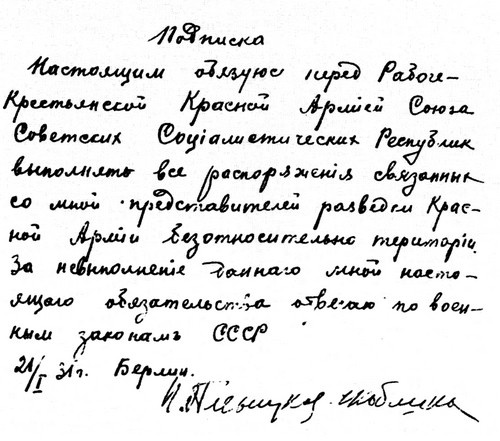 Подписка
Настоящим обязуюс перед Рабоче-
Крестьянской Красной Армiей Союза
Советских Социалистических Республик
выполнять все распоряженiя связанных
со мной представителей разведки Крас-
ной Армiи безотносительно територiи.
За невыполненiе даннаго мной насто-
ящего обязательства отвечаю по воен-
ным законамъ СССР
21/I 31г. Берлин.